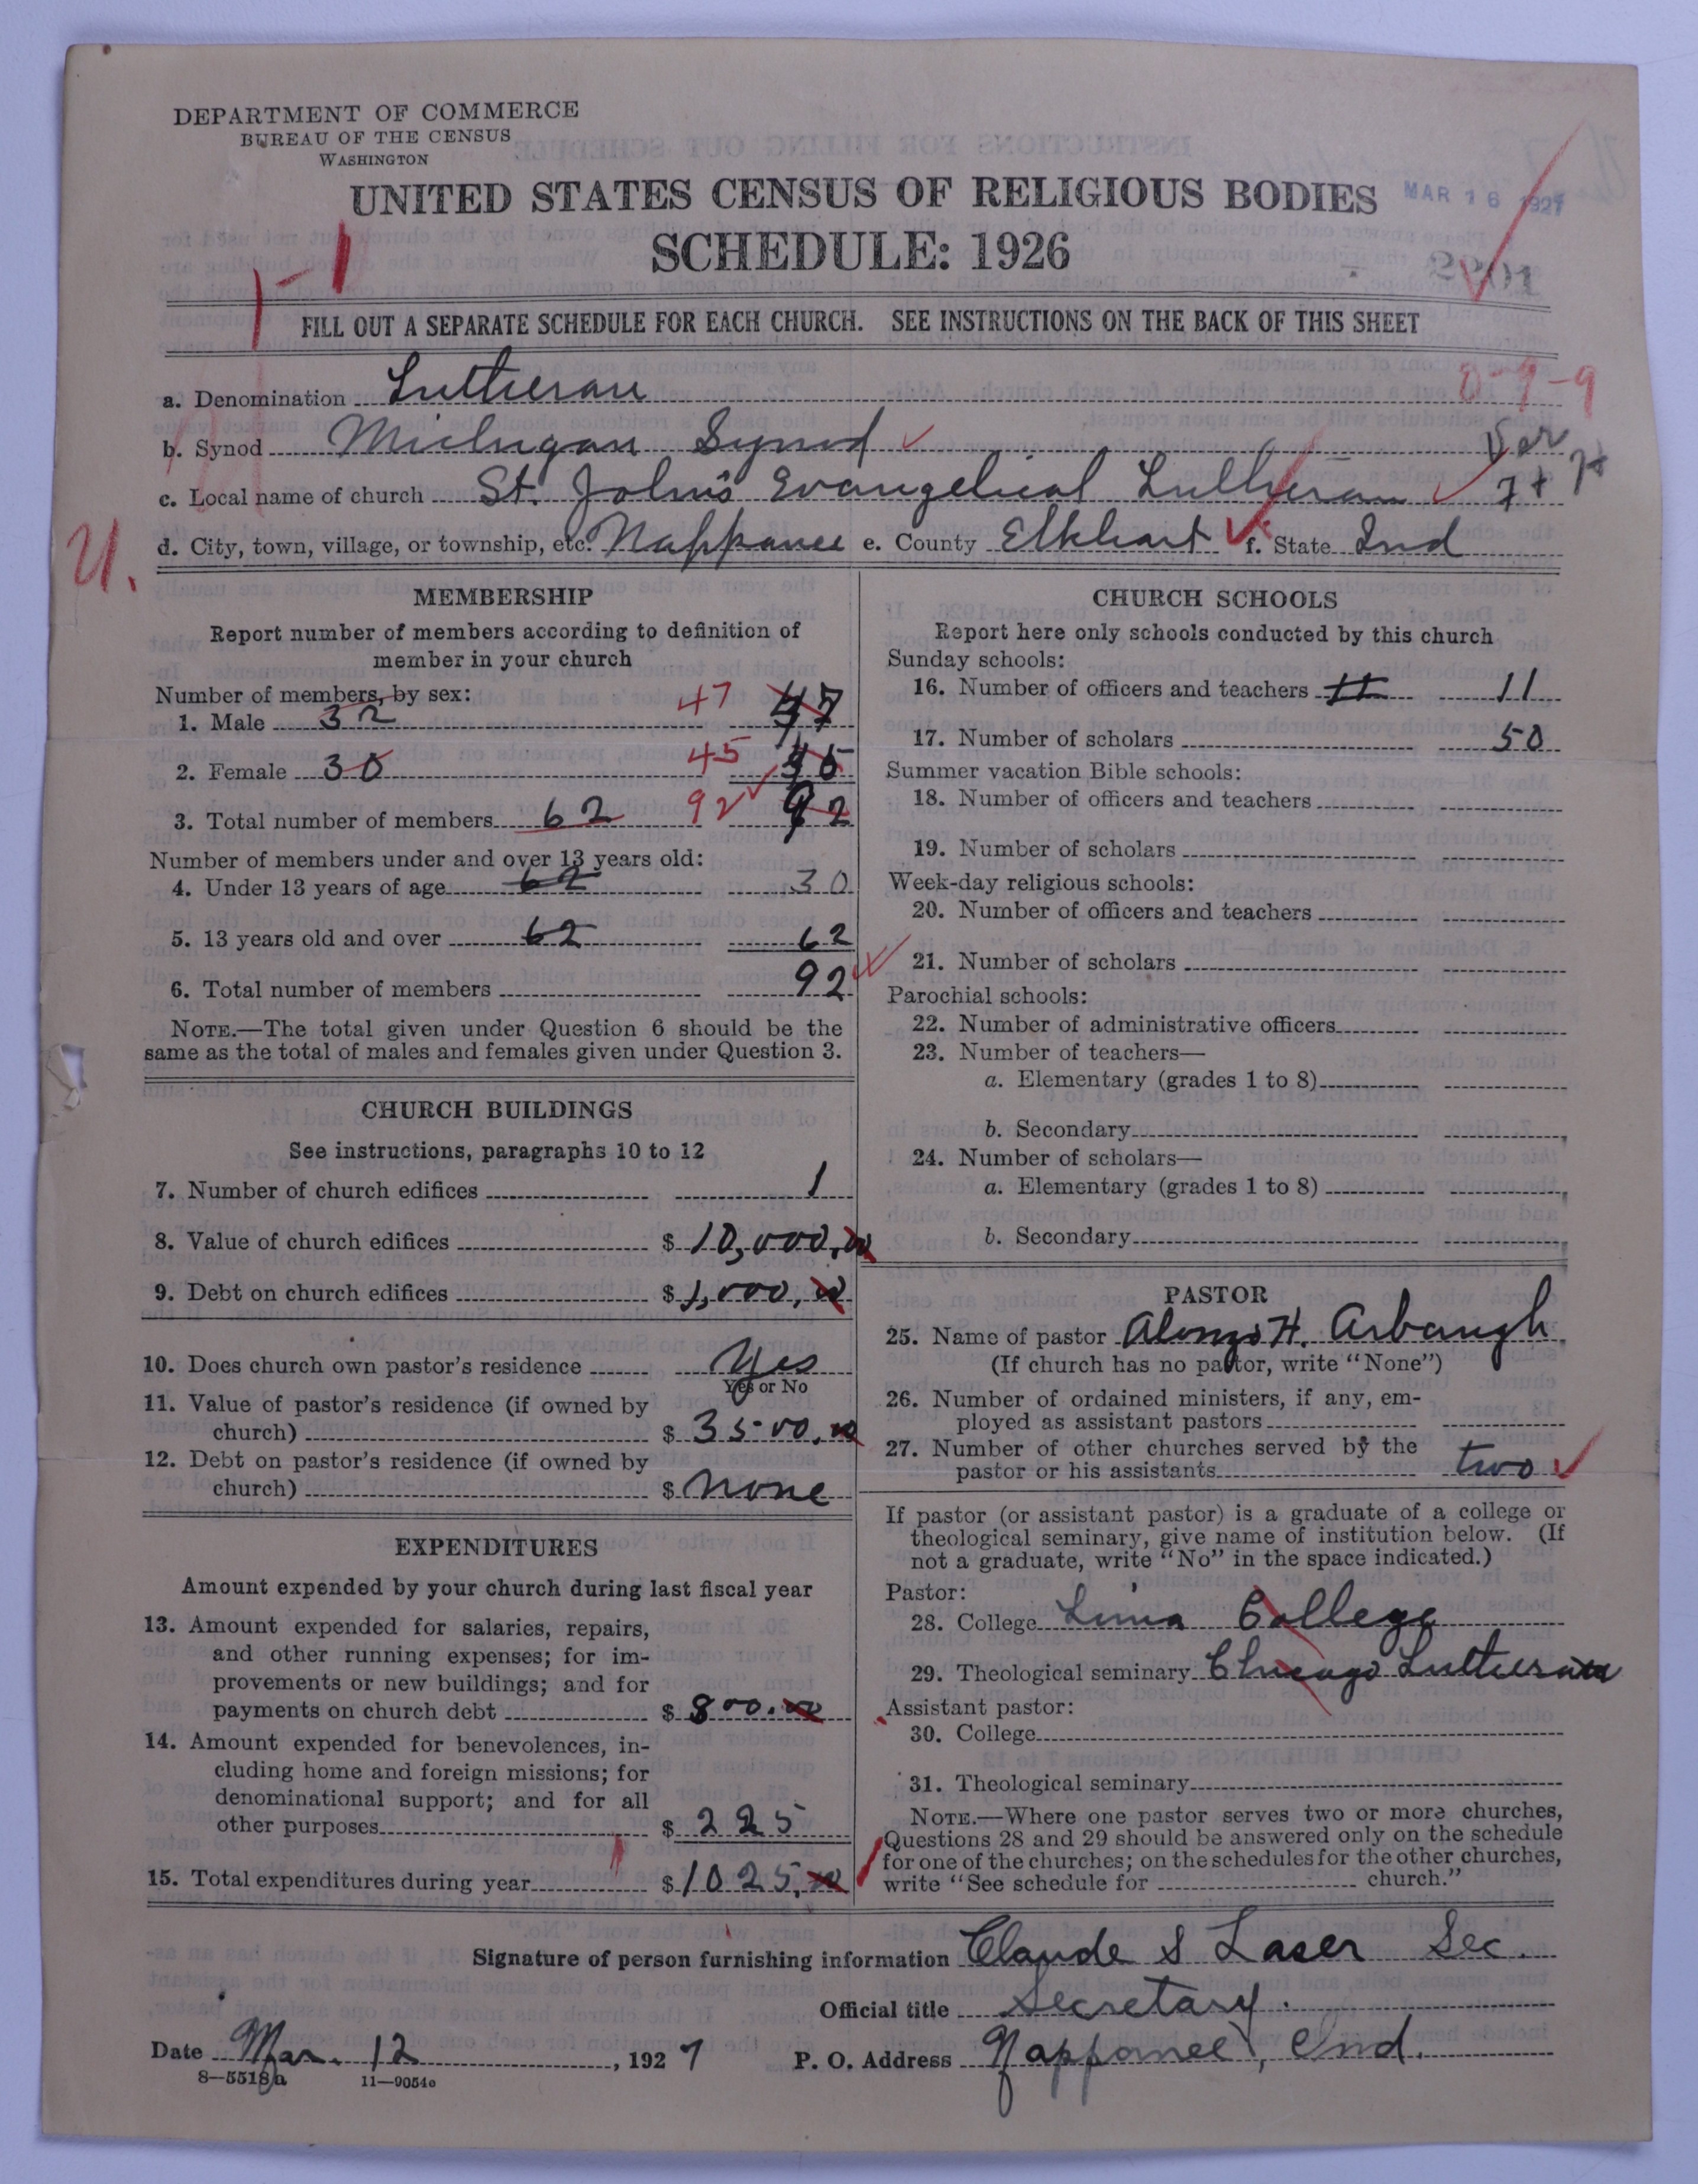 DEPARTMENT OF COMMERCE
BUREAU OF THE CENSUS
WASHINGTON
UNITED STATES CENSUS OF RELIGIOUS BODIES
MAR 16 1927
SCHEDULE: 1926
1-1
2201
FILL OUT A SEPARATE SCHEDULE FOR EACH CHURCH. SEE INSTRUCTIONS ON THE BACK OF THIS SHEET
a. Denomination Lutheran
0-9-9
b. Synod Michigan Synod
c. Local name of church St. John's Evangelical Lutheran 7+
U.
d. City, town, village, or township, etc. Nappanee e. County Elkhart f. State Ind
MEMBERSHIP
Report number of members according to definition of
member in your church
Number of members, by sex:
1. Male 32 47 47
2. Female 30 45 45
3. Total number of members 62 92 92
Number of members under and over 13 years old:
4. Under 13 years of age 62 30
5. 13 years old and over 62 62
6. Total number of members 92
NOTE.—The total given under Question 6 should be the
same as the total of males and females given under Question 3.
CHURCH BUILDINGS
See instructions, paragraphs 10 to 12
7. Number of church edifices 1
8. Value of church edifices $ 10,000.00
9. Debt on church edifices $ 1,000,00
10. Does church own pastor's residence Yes
Yes or No
11. Value of pastor's residence (if owned by
church) $ 3500.00
12. Debt on pastor's residence (if owned by
church) $ None
EXPENDITURES
Amount expended by your church during last fiscal year
13. Amount expended for salaries, repairs,
and other running expenses; for im-
provements or new buildings; and for
payments on church debt $ 800.00
14. Amount expended for benevolences, in-
cluding home and foreign missions; for
denominational support; and for all
other purposes $ 225
15. Total expenditures during year $ 1025.00
CHURCH SCHOOLS
Report here only schools conducted by this church
Sunday schools:
16. Number of officers and teachers 11 11
17. Number of scholars 50
Summer vacation Bible schools:
18. Number of officers and teachers
19. Number of scholars
Week-day religious schools:
20. Number of officers and teachers
21. Number of scholars
Parochial schools:
22. Number of administrative officers
23. Number of teachers—
a. Elementary (grades 1 to 8)
b. Secondary
24. Number of scholars—
a. Elementary (grades 1 to 8)
b. Secondary
PASTOR
25. Name of pastor Alonzo H. Arbaugh
(If church has no pastor, write "None")
26. Number of ordained ministers, if any, em-
ployed as assistant pastors
27. Number of other churches served by the
pastor or his assistants two
If pastor (or assistant pastor) is a graduate of a college or
theological seminary, give name of institution below. (If
not a graduate, write "No" in the space indicated.)
Pastor:
28. College Lima College
29. Theological seminary Chicago Lutheran
Assistant pastor:
30. College
31. Theological seminary
NOTE.—Where one pastor serves two or more churches,
Questions 28 and 29 should be answered only on the schedule
for one of the churches; on the schedules for the other churches,
write "See schedule for church."
Signature of person furnishing information Claude S Laser Sec.
Official title Secretary.
Date Mar. 12, 1927 P. O. Address Nappanee, Ind.
8—5518a 11—9054c